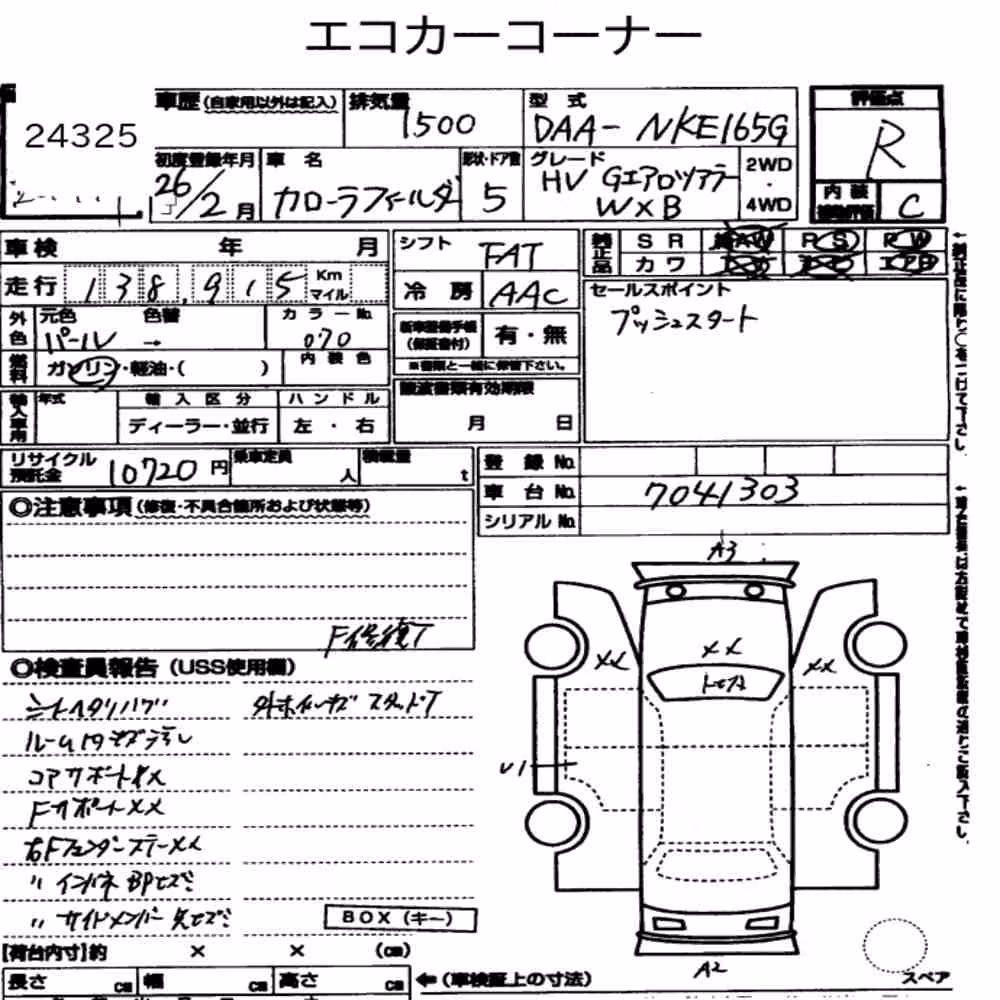 エコカーコーナー
24325
車歴 (自家用以外は記入)
排気量 1500
型式 DAA-NKE165G
評価点 R
初度登録年月 26/2月
車名 カローラフィールダ
形状・ドア数 5
グレード HV Gエアロツアラー W×B
2WD・4WD
内装 補助評価 C
車検 年 月
シフト FAT
純正品 SR AW PS PW
カワ
走行 138,915 Km マイル
冷房 AAC
セールスポイント
プッシュスタート
外色 元色 パール 色替 → カラーNo. 070
新車整備手帳 (保証書付) 有・無
※書類と一緒に保管下さい。
燃料 ガソリン・軽油・( ) 内装色
譲渡書類有効期限
月 日
輸入車用 年式 輸入区分 ハンドル
ディーラー・並行 左・右
リサイクル預託金 10720円 乗車定員 人 積載量 t
登録No.
車台No. 7041303
シリアルNo.
◎注意事項 (修復・不具合箇所および状態等)
F修復T
◎検査員報告 (USS使用欄)
シートヘタリハゲ
外ホイールキズ スタッドT
ルーム内キズ汚レ
コアサポート交X
FサポートXX
右FフェンダーステーXX
〃 インパネBPキズ
〃 サイドメンバー先キズ
BOX (キー)
【荷台内寸】約 × × (cm)
長さ cm 幅 cm 高さ cm ← (車検証上の寸法)
A3
XX
XX
XX
トヨタ
U1
A2
スペア